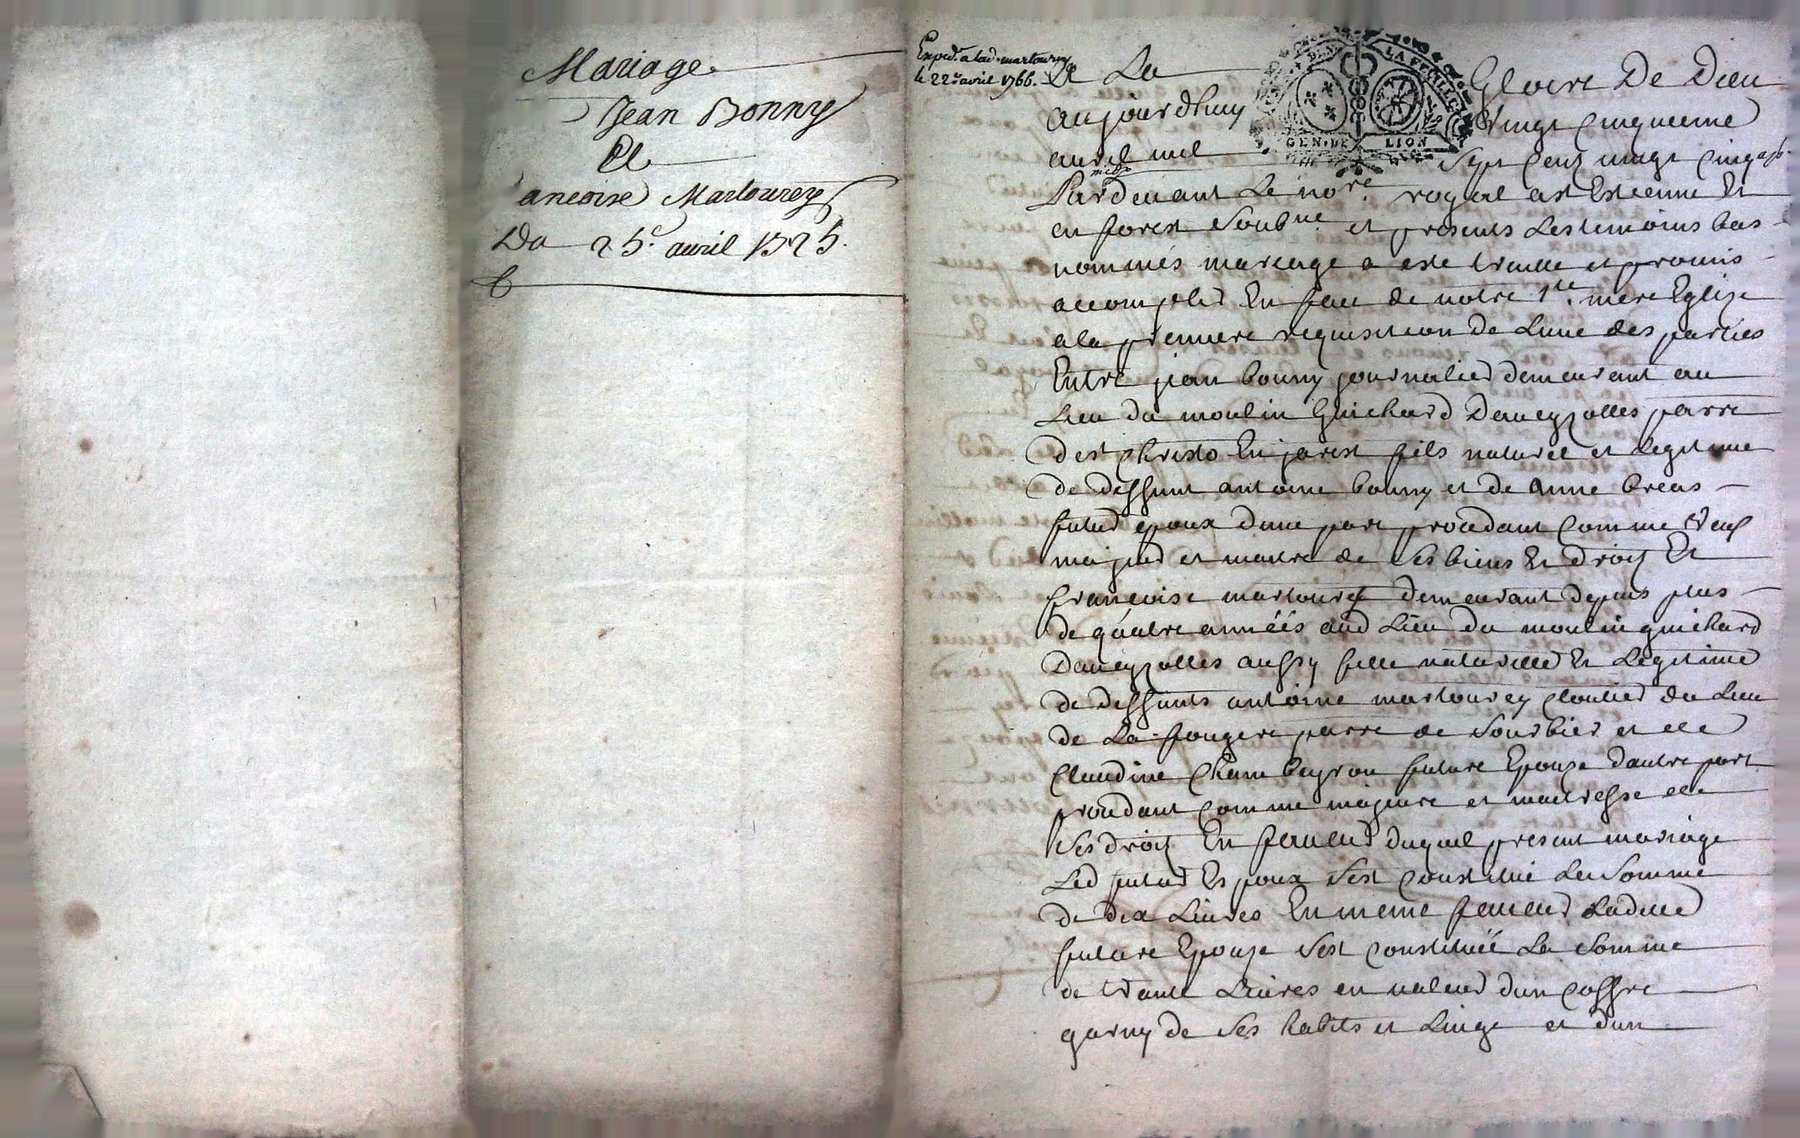 Mariage
Jean Bonny
Et
ancoise Martourey
Du 25e. avril 1725.
Exped. a lad. martourey
le 22e. avril 1766.
A La Gloire De Dieu
aujourdhuy Vingt Cinquieme
avril mil Sept Cent vingt Cinq
GEN. DE LION
Pardevant Le nore. royal a st Estienne En
en forest Soubne. et presents Les temoins bas
nommés mariage a este traitte et promis
accomplir En face de notre Ste. mere Eglize
a la premiere requisition de Lune des parties
Entre jean bonny journalier demeurant au
Lieu du moulin Guichard Daveyzolles parre
de st Christo En jarest fils naturel et Legitime
de deffunt antoine bonny et de anne breas
futur epoux dune part procedant Comme
majeur et maitre de Ses biens Et droits Et
francoise martourey demeurant depuis plus
de quatre années aud Lieu du moulin guichard
Daveyzolles aussy fille naturelle Et Legitime
de deffunts antoine martourey Cloutier du Lieu
de La fougere parre de Sorbier et de
Claudine Chambeyron future Epouze dautre part
procedant Comme majeure et maitresse de
Ses droits En faveur duquel present mariage
Led futur Epoux Sest Constitué La Somme
de dix Livres En meme faveur Ladite
future Epouze Sest Constituée La Somme
de trante Livres en valeur dun Coffre
garny de Ses habits et Linge et dun